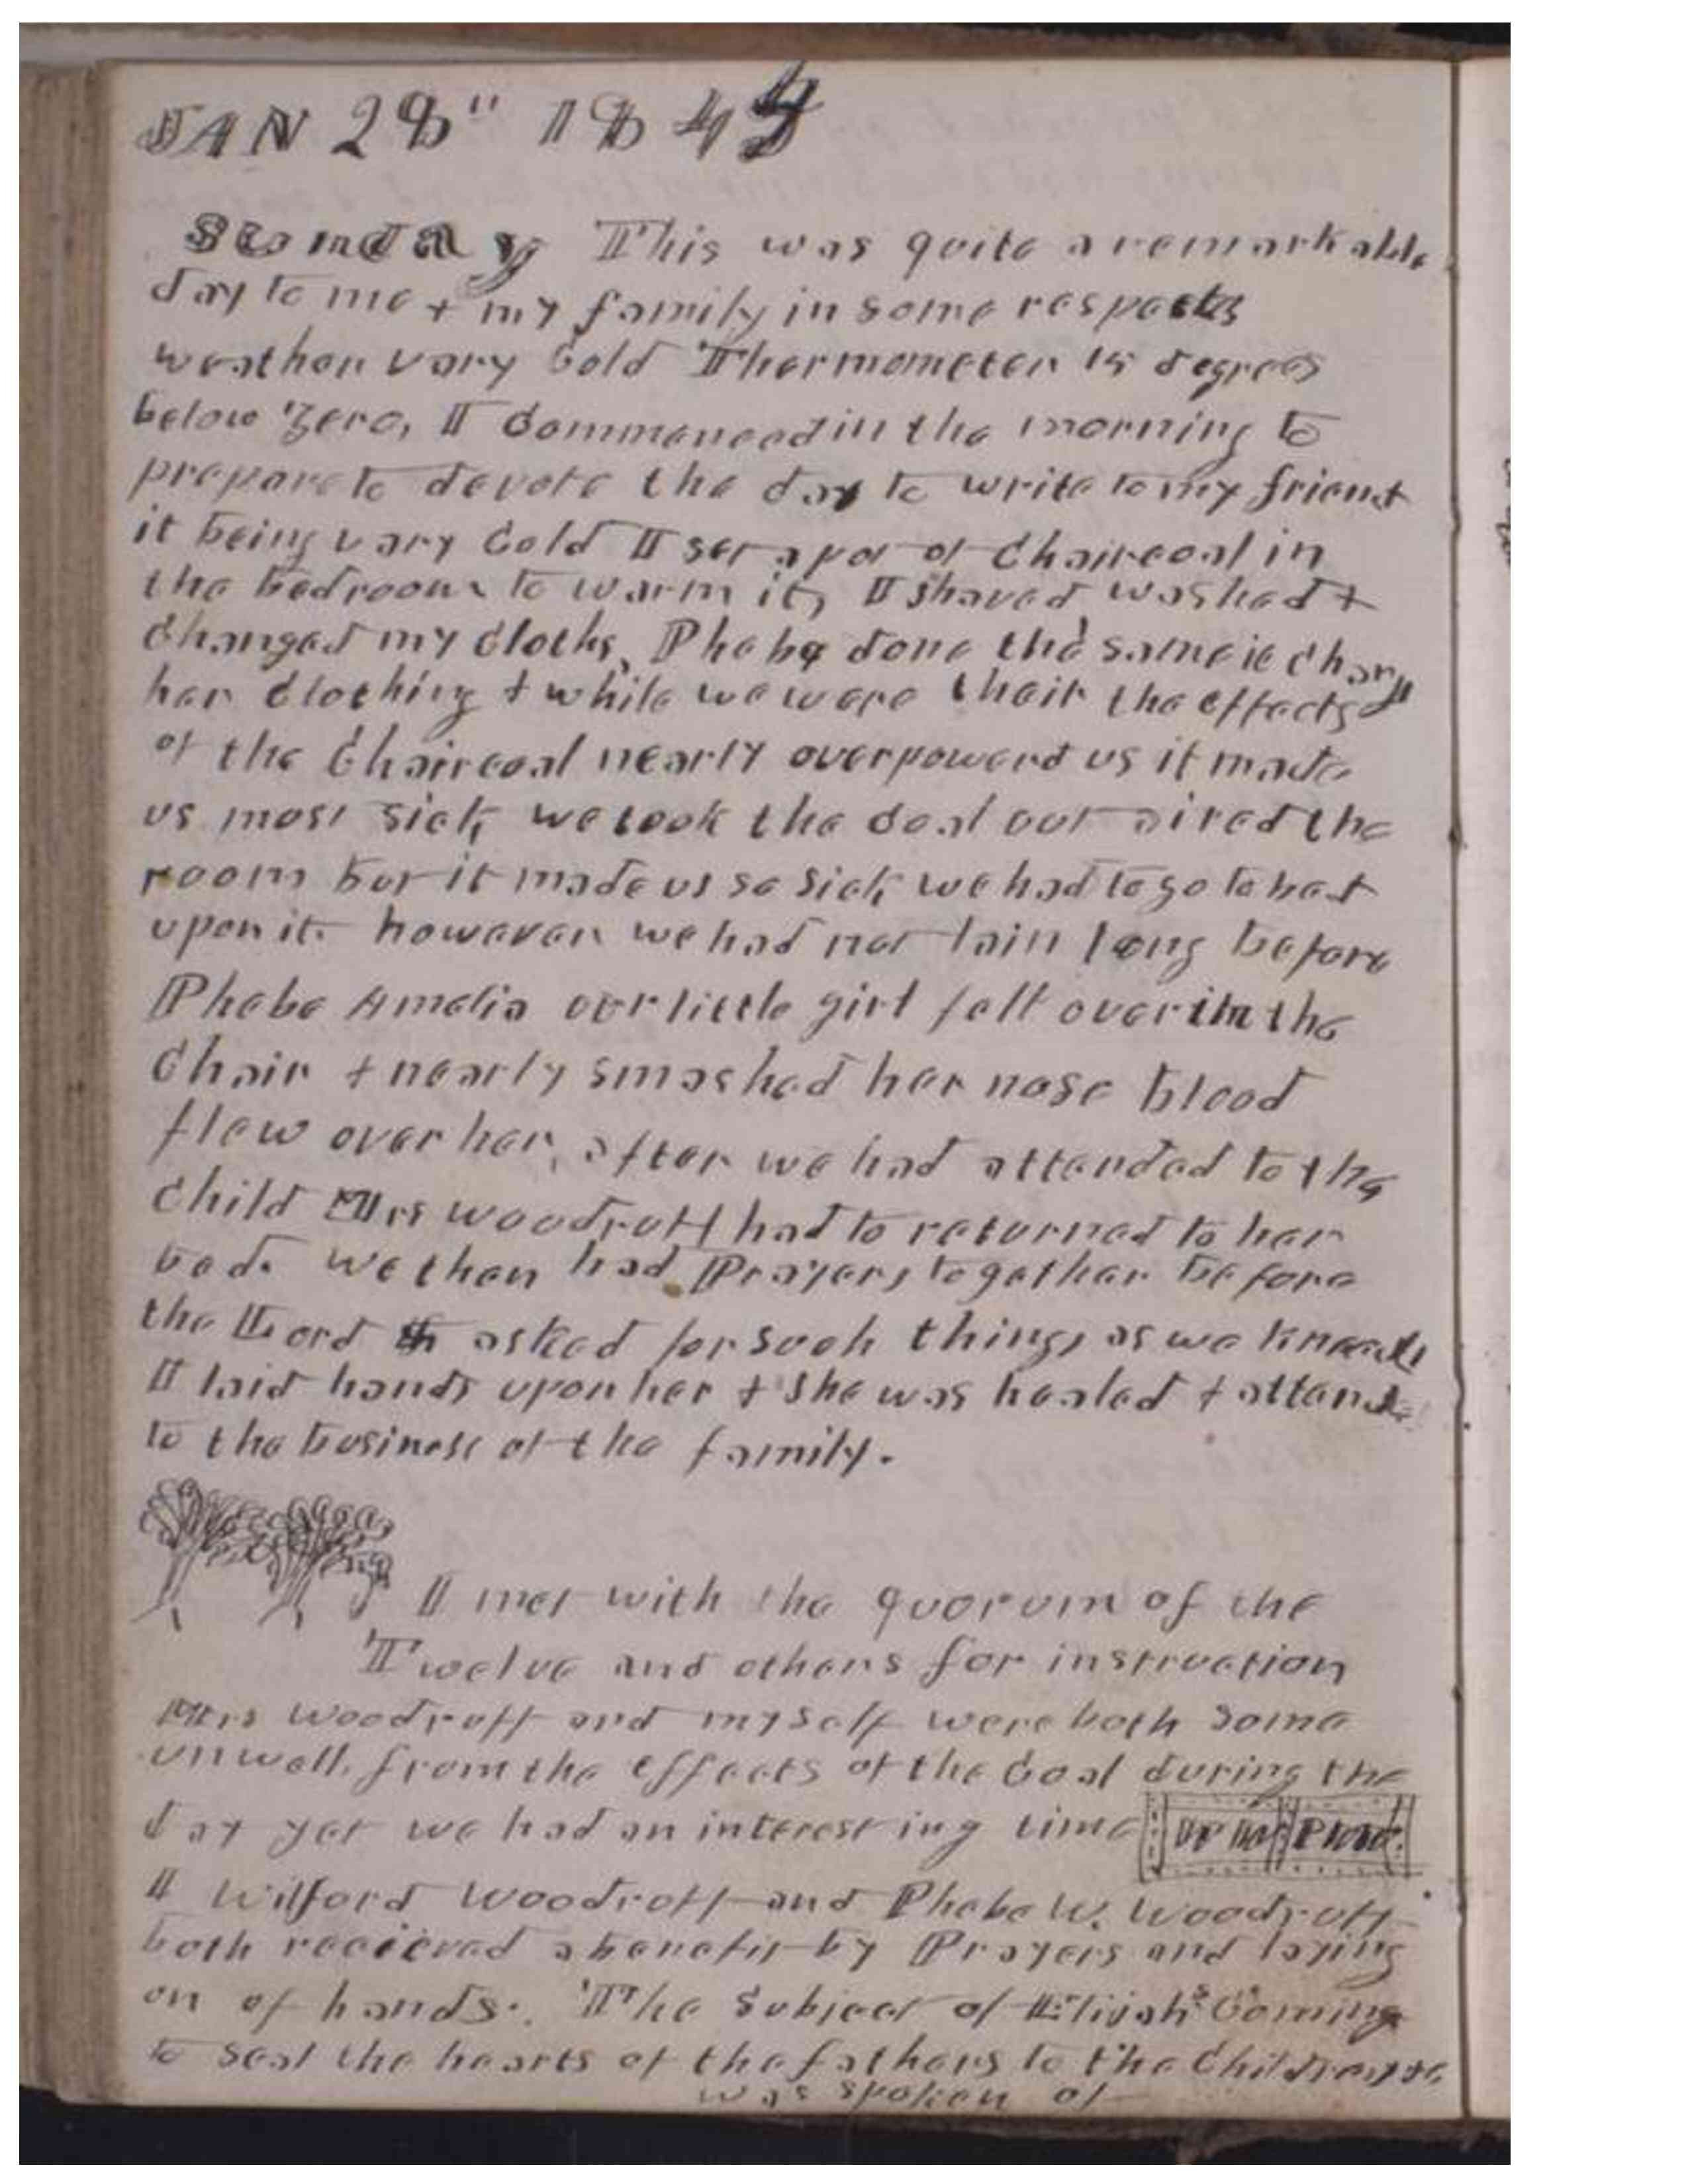 JAN 28" 1844
Sunday This was quite a remarkable
day to me & my family in some respects
weather vary Cold Thermometer 15 degrees
below Zero, I Commenced in the morning to
prepare to devote the day to write to my friend
it being vary Cold I set a pot of Chaircoal in
the bedroom to warm it, I shaved washed &
Changed my Cloths, Phebe done the same ie Chang
her Clothing & while we were thair the effects
of the Chaircoal nearly overpowerd us it made
us most sick, we took the Coal out aired the
room but it made us so sick we had to go to bed
upon it. however we had not lain long before
Phebe Amelia our little girl fell over in the
Chair & nearly smashed her nose blood
flew over her, after we had attended to the
Child Mrs woodruff had to returned to her
bed. we then had Prayers together before
the Lord & asked for such things as we kneed
I laid hands upon her & she was healed & attend
to the business of the family.
I met with the quorum of the
Twelve and others for instruction
Mrs Woodruff and myself were both some
unwell, from the effects of the Coal during the
day yet we had an interesting time
I Wilford Woodruff and Phebe W. Woodruff
both recieved a benefit by Prayers and laying
on of hands. The Subject of Elijah's Coming
to seal the hearts of the fathers to the Children &c
was spoken of